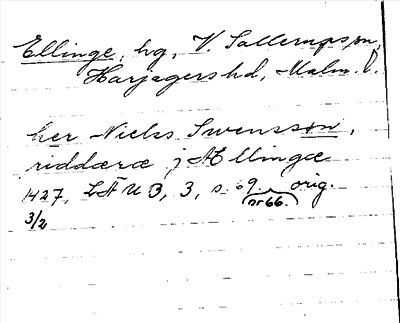 Ellinge, hg, V. Sallerups sn,
Harjagers hd, Malm. l.
her Niclis Swensson,
riddæræ j Ællingæ
1427, LÄUB, 3, s. 69. orig.
3/2 (nr 66.)